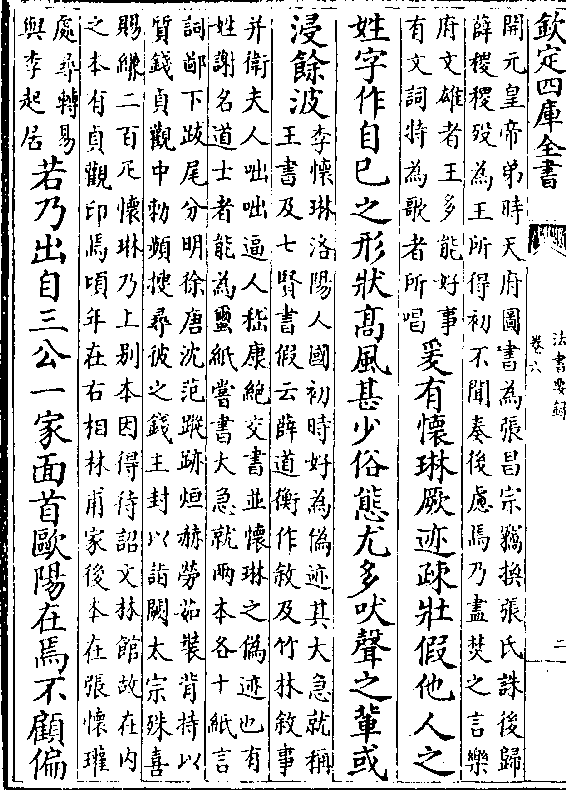 欽定四庫全書
法書要錄
卷六
二
開元皇帝弟時天府圖書為張昌宗竊換張氏誅後歸
薛稷稷歿為王所得初不聞奏後慮焉乃盡焚之言樂
府文雄者王多能好事
有文詞持為歌者所唱
爰有懷琳厥迹疎壯假他人之
姓字作自已之形狀髙風甚少俗態尤多吠聲之輩或
浸餘波
李懷琳洛陽人國初時好為偽迹其大急就稱
王書及七賢書假云薛道衡作敘及竹林敘事
并衛夫人咄咄逼人嵇康絶交書並懷琳之偽迹也有
姓謝名道士者能為靈紙嘗書大急就兩本各十紙言
詞鄙下跋尾分明徐唐沈范蹤跡烜赫勞茹裝背持以
質錢貞觀中勅頻搜尋彼之錢主封以詣闕太宗殊喜
賜縑二百疋懷琳乃上别本因得待詔文林館故在内
之本有貞觀印焉頃年在右相林甫家後本在張懷瓘
處尋轉易
與李起居
若乃出自三公一家面首歐陽在焉不顧偏